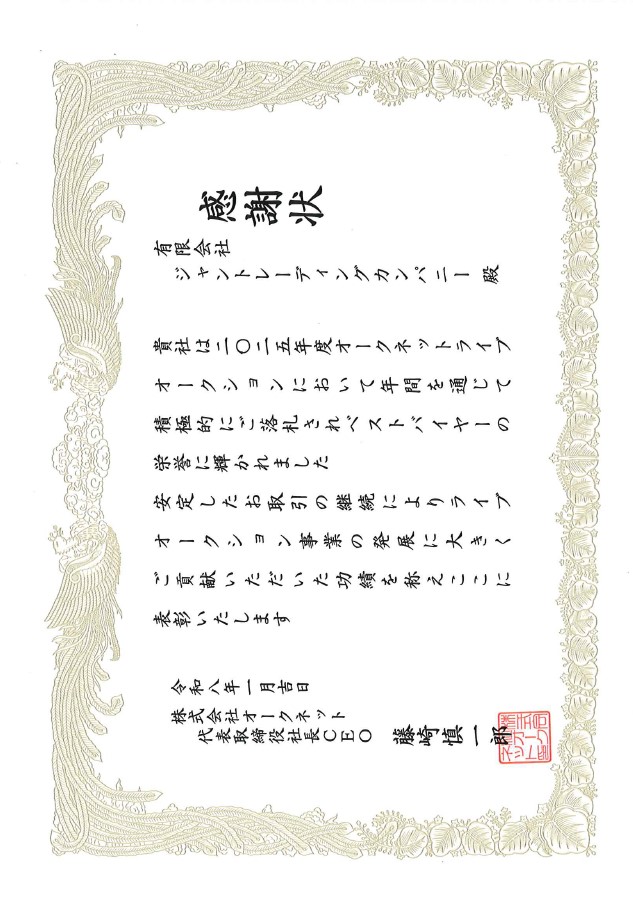 感謝状
有限会社
ジャントレーディングカンパニー 殿
貴社は二〇二五年度オークネットライブ
オークションにおいて年間を通じて
積極的にご落札されベストバイヤーの
栄誉に輝かれました
安定したお取引の継続によりライブ
オークション事業の発展に大きく
ご貢献いただいた功績を称えここに
表彰いたします
令和八年一月吉日
株式会社オークネット
代表取締役社長CEO 藤崎慎一郎